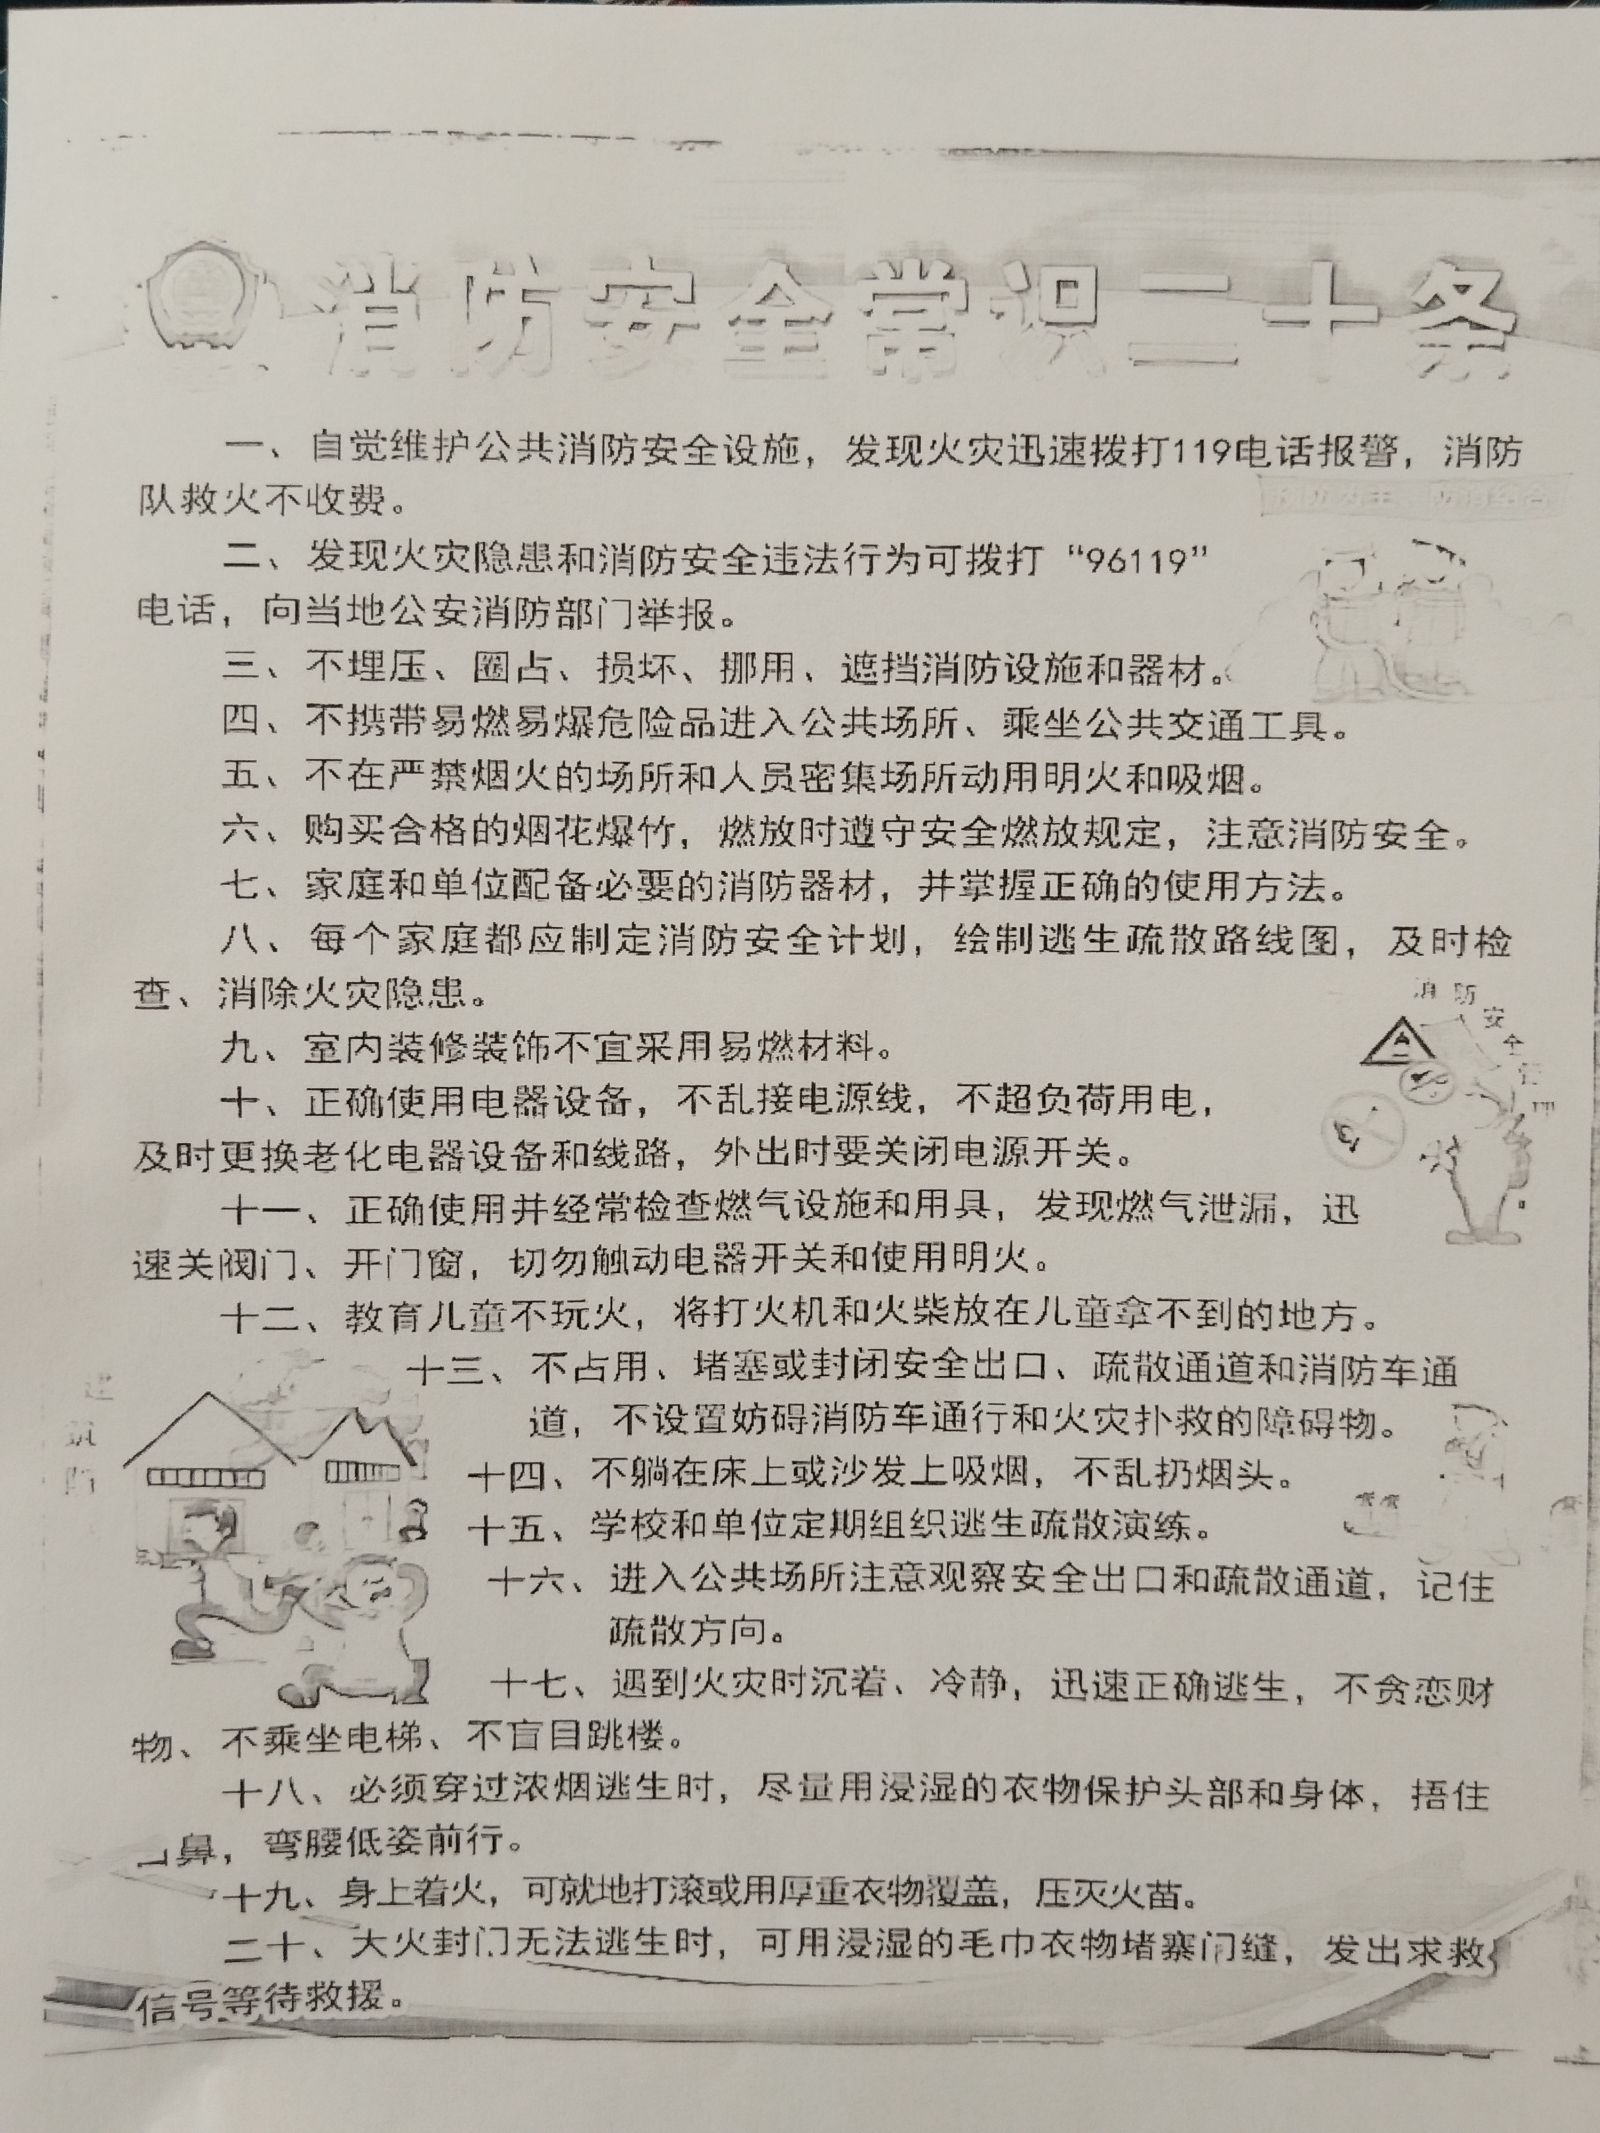 消防安全常识二十条
一、自觉维护公共消防安全设施，发现火灾迅速拨打119电话报警，消防
队救火不收费。
二、发现火灾隐患和消防安全违法行为可拨打“96119”
电话，向当地公安消防部门举报。
三、不埋压、圈占、损坏、挪用、遮挡消防设施和器材。
四、不携带易燃易爆危险品进入公共场所、乘坐公共交通工具。
五、不在严禁烟火的场所和人员密集场所动用明火和吸烟。
六、购买合格的烟花爆竹，燃放时遵守安全燃放规定，注意消防安全。
七、家庭和单位配备必要的消防器材，并掌握正确的使用方法。
八、每个家庭都应制定消防安全计划，绘制逃生疏散路线图，及时检
查、消除火灾隐患。
消防安全
九、室内装修装饰不宜采用易燃材料。
十、正确使用电器设备，不乱接电源线，不超负荷用电，
及时更换老化电器设备和线路，外出时要关闭电源开关。
十一、正确使用并经常检查燃气设施和用具，发现燃气泄漏，迅
速关阀门、开门窗，切勿触动电器开关和使用明火。
十二、教育儿童不玩火，将打火机和火柴放在儿童拿不到的地方。
十三、不占用、堵塞或封闭安全出口、疏散通道和消防车通
道，不设置妨碍消防车通行和火灾扑救的障碍物。
十四、不躺在床上或沙发上吸烟，不乱扔烟头。
十五、学校和单位定期组织逃生疏散演练。
十六、进入公共场所注意观察安全出口和疏散通道，记住
疏散方向。
十七、遇到火灾时沉着、冷静，迅速正确逃生，不贪恋财
物、不乘坐电梯、不盲目跳楼。
十八、必须穿过浓烟逃生时，尽量用浸湿的衣物保护头部和身体，捂住
口鼻，弯腰低姿前行。
十九、身上着火，可就地打滚或用厚重衣物覆盖，压灭火苗。
二十、大火封门无法逃生时，可用浸湿的毛巾衣物堵塞门缝，发出求救
信号等待救援。